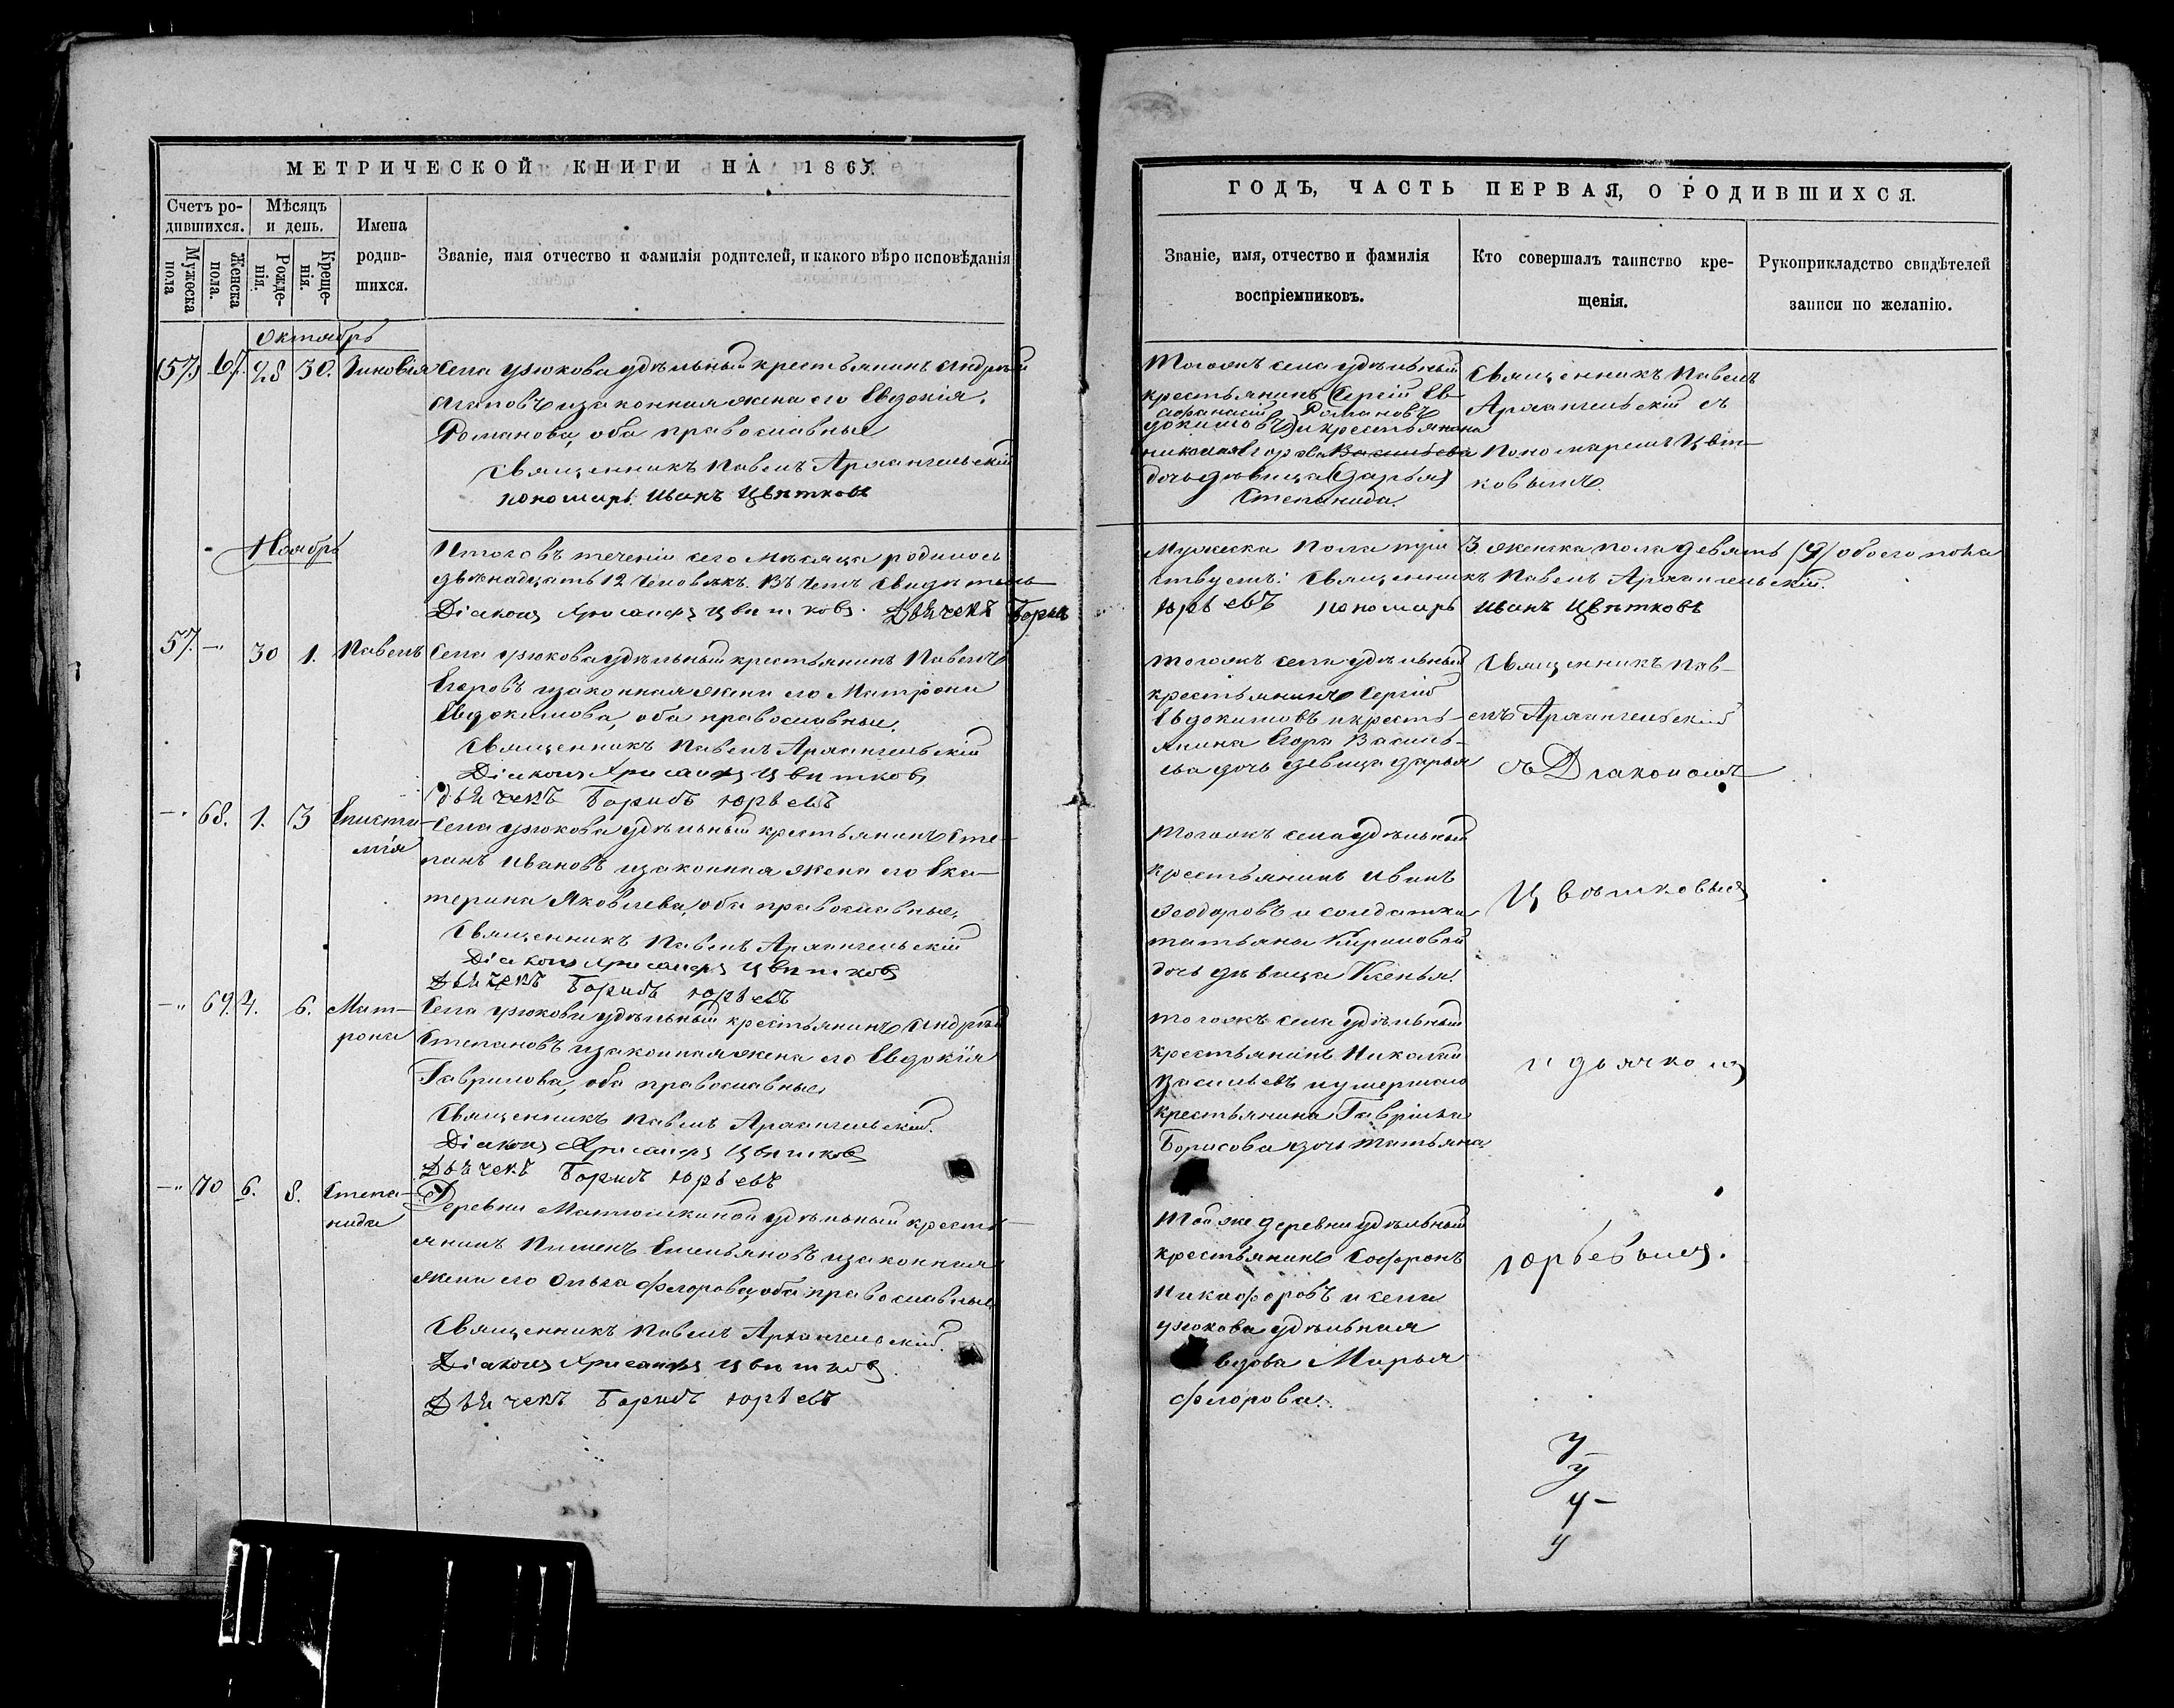 МЕТРИЧЕСКОЙ КНИГИ НА 1865
Счетъ ро-
дившихся.
Мѣсяцъ
и день.
Имена
родив-
шихся.
Званіе, имя отчество и фамилія родителей, и какого вѣроисповѣданія
Мужеска
пола
Женска
пола.
Рожде-
нія.
Креще-
нія.
Октябрь
67. 28 30. Зиновія
Села Узюкова удѣльный крестьянинъ Андрей
Агаповъ и законная жена его Евдокія
Романова, оба православные
Священникъ Павелъ Архангельскій
пономарь Иванъ Цвѣтковъ
Ноябрь
Итого въ теченіи сего мѣсяца родилось
двѣнадцать 12 человѣкъ. Въ чемъ свидѣтель
Діаконъ Хрисанфъ Цвѣтковъ. Дьячекъ Борисъ
57. -"- 30 1. Павелъ
Села Узюкова удѣльный крестьянинъ Павелъ
Егоровъ и законная жена его Матрона
Евдокимова, оба православные.
Священникъ Павелъ Архангельскій
Діаконъ Хрисанфъ Цвѣтковъ
дьячекъ Борисъ Юрьевъ
-"- 68. 1. 3 Еписти-
мія
Села Узюкова удѣльный крестьянинъ Сте-
панъ Ивановъ и законная жена его Ека-
терина Яковлева, оба православные,
Священникъ Павелъ Архангельскій
Діаконъ Хрисанфъ Цвѣтковъ
Дьячекъ Борисъ Юрьевъ
-"- 69. 4. 6. Мат-
рона
Села Узюкова удѣльный крестьянинъ Андрей
Степановъ и законная жена его Евдокія
Гаврилова, оба православные
Священникъ Павелъ Архангельскій.
Діаконъ Хрисанфъ Цвѣтковъ
Дьячекъ Борисъ Юрьевъ
-"- 70 6. 8. Степа-
нида
Деревни Матюшкиной удѣльный кресть-
янинъ Пименъ Емельяновъ и законная
жена его Ольга Флорова, оба православные
Священникъ Павелъ Архангельскій.
Діаконъ Хрисанфъ Цвѣтковъ.
Дьячекъ Борисъ Юрьевъ
ГОДЪ, ЧАСТЬ ПЕРВАЯ, О РОДИВШИХСЯ.
Званіе, имя, отчество и фамилія
воспріемниковъ.
Кто совершалъ таинство кре-
щенія.
Рукоприкладство свидѣтелей
записи по желанію.
Тогожъ села удѣльный
крестьянинъ (Сергій Ев-
Афанасій Романовъ
докимовъ) и крестьянина
Егора Васильева
дочь дѣвица (Дарья)
Степанида.
Священникъ Павелъ
Архангельскій съ
Пономаремъ Цвѣт-
ковымъ.
Мужеска пола три 3. женска пола девять (9) обоего пола
ствуемъ: Священникъ Павелъ Архангельскій.
Юрьевъ пономарь Иванъ Цвѣтковъ
Тогожъ села удѣльный
крестьянинъ Сергій
Евдокимовъ и кресть-
янина Егора Василь-
ева дочь девица Дарья
Священникъ Пав-
елъ Архангельскій
съ Діакономъ
Тогожъ села удѣльный
крестьянинъ Иванъ
Феодоровъ и солдатки
Татьяны Кириловой
дочь дѣвица Ксенья.
Цвѣтковымъ
Тогожъ села удѣльный
крестьянинъ Николай
Васильевъ и умершаго
крестьянина Гаврила
Борисова дочь Татьяна
и дьячкомъ
Той же деревни удѣльный
крестьянинъ Софронъ
Никифоровъ и села
Узюкова удѣльная
вдова Марья
Флорова.
Юрьевымъ.